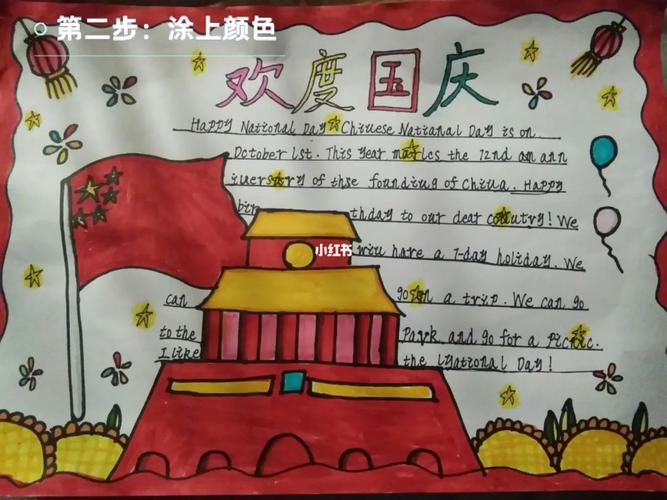 第二步：涂上颜色
欢度国庆
Happy National Day Chinese National Day is on
October 1st. This year marks the 72nd am ann
iversary of thse founding of China. Happy
bir thday to our dear country! We
小红书
will have a 7-day holiday. We
can go on a trip. We can go
to the Park and go for a picnic.
I like the National Day!